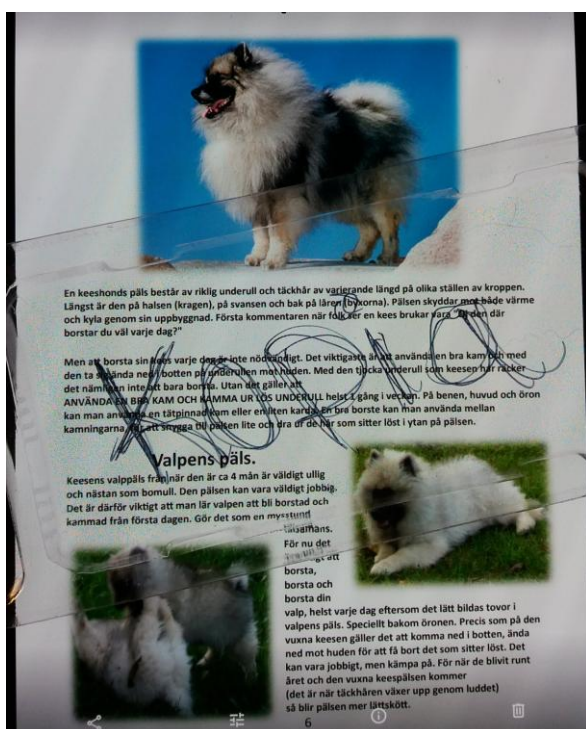 En keeshonds päls består av riklig underull och täckhår av varierande längd på olika ställen av kroppen.
Längst är den på halsen (kragen), på svansen och bak på låren (byxorna). Pälsen skyddar mot både värme
och kyla genom sin uppbyggnad. Första kommentaren när folk ser en kees brukar vara "Oj den där
borstar du väl varje dag?"
Men att borsta sin kees varje dag är inte nödvändigt. Det viktigaste är att använda en bra kam och med
den ta sig ända ned i botten på underullen mot huden. Med den tjocka underull som keesen har räcker
det nämligen inte att bara borsta. Utan det gäller att
ANVÄNDA EN BRA KAM OCH KAMMA UR LÖS UNDERULL helst 1 gång i veckan. På benen, huvud och öron
kan man använda en tätpinnad kam eller en liten karda. En bra borste kan man använda mellan
kamningarna, för att snygga till pälsen lite och dra ur de hår som sitter löst i ytan på pälsen.
Kopia
Valpens päls.
Keesens valppäls från när den är ca 4 mån är väldigt ullig
och nästan som bomull. Den pälsen kan vara väldigt jobbig.
Det är därför viktigt att man lär valpen att bli borstad och
kammad från första dagen. Gör det som en mysstund
tillsammans.
För nu det
att
borsta,
borsta och
borsta din
valp, helst varje dag eftersom det lätt bildas tovor i
valpens päls. Speciellt bakom öronen. Precis som på den
vuxna keesen gäller det att komma ned i botten, ända
ned mot huden för att få bort det som sitter löst. Det
kan vara jobbigt, men kämpa på. För när de blivit runt
året och den vuxna keespälsen kommer
(det är när täckhåren växer upp genom luddet)
så blir pälsen mer lättskött.
6